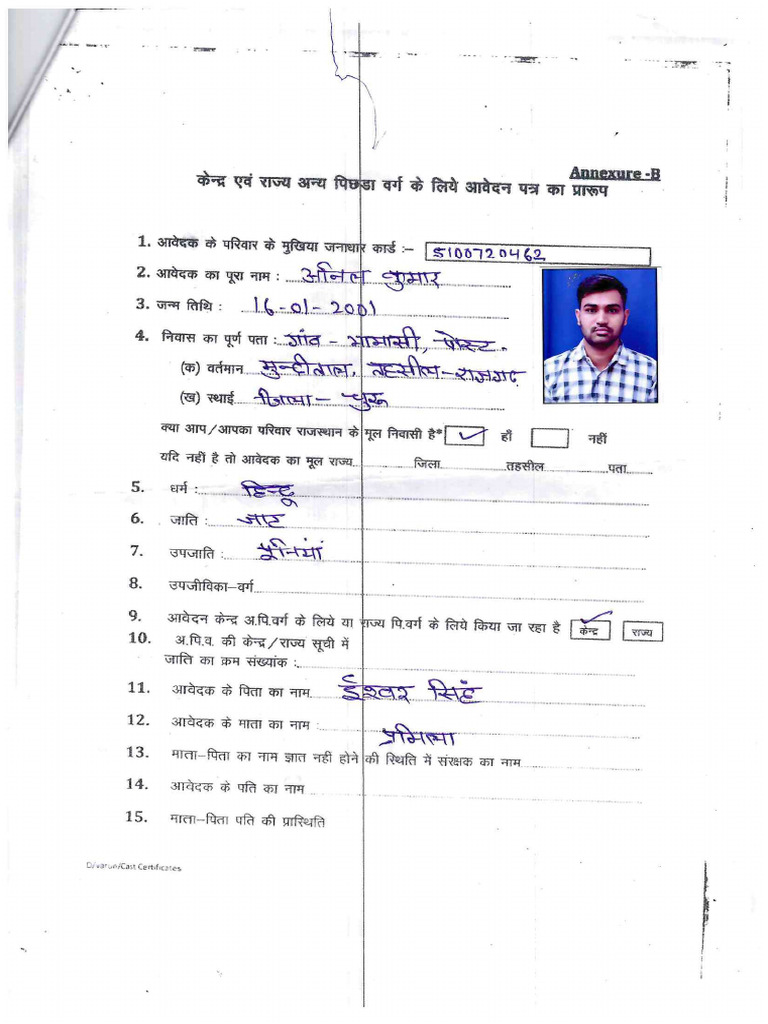 Annexure -B
केन्द्र एवं राज्य अन्य पिछडा वर्ग के लिये आवेदन पत्र का प्रारूप
1. आवेदक के परिवार के मुखिया जनाधार कार्ड :– 5100720462
2. आवेदक का पूरा नाम : अनिल कुमार
3. जन्म तिथि : 16-01-2001
4. निवास का पूर्ण पता : गांव - भामासी, पोस्ट -
(क) वर्तमान मुन्दीताल, तहसील - राजगढ़
(ख) स्थाई जिला - चुरू
क्या आप/आपका परिवार राजस्थान के मूल निवासी है* ✓ हाँ नहीं
यदि नहीं है तो आवेदक का मूल राज्य जिला तहसील पता
5. धर्म : हिन्दू
6. जाति : जाट
7. उपजाति : पूनियां
8. उपजीविका–वर्ग
9. आवेदन केन्द्र अ.पि.वर्ग के लिये या राज्य पि.वर्ग के लिये किया जा रहा है ✓ केन्द्र राज्य
10. अ.पि.व. की केन्द्र/राज्य सूची में
जाति का क्रम संख्यांक :
11. आवेदक के पिता का नाम ईश्वर सिंह
12. आवेदक के माता का नाम : प्रमिला
13. माता–पिता का नाम ज्ञात नहीं होने की स्थिति में संरक्षक का नाम
14. आवेदक के पति का नाम
15. माता–पिता पति की प्रास्थिति
D/varun/Cast Certificates